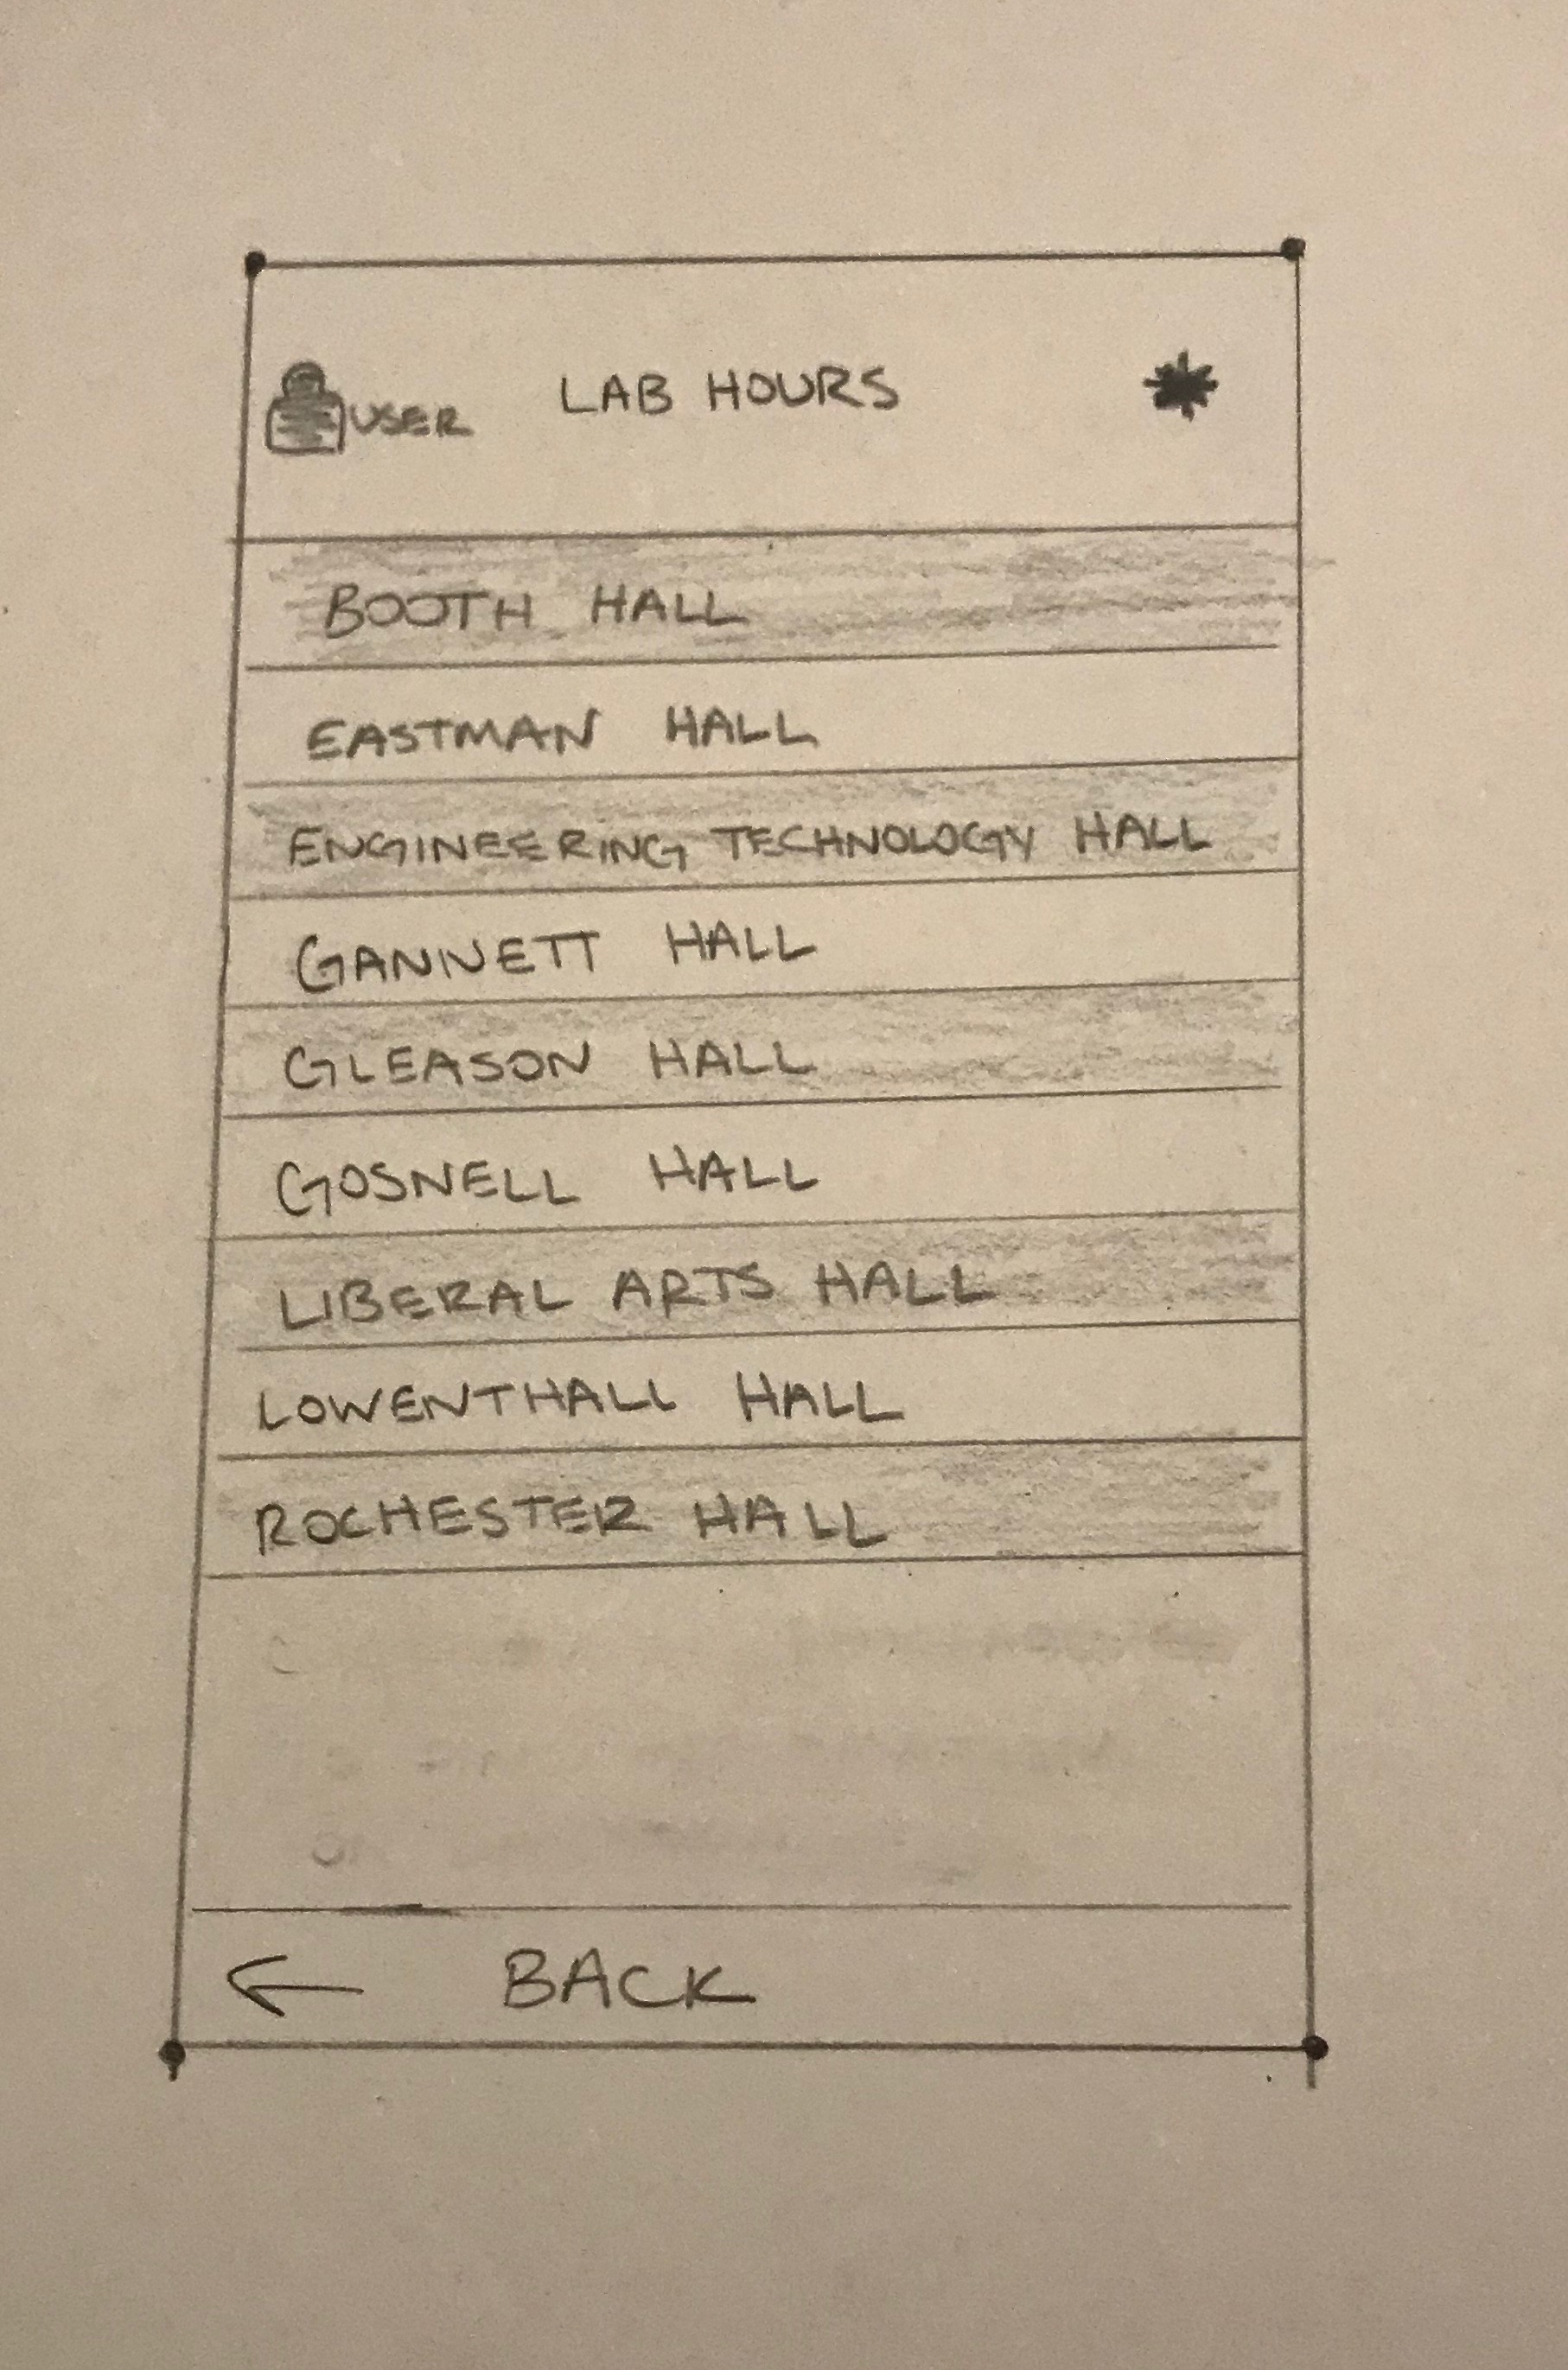 USER LAB HOURS
BOOTH HALL
EASTMAN HALL
ENGINEERING TECHNOLOGY HALL
GANNETT HALL
GLEASON HALL
GOSNELL HALL
LIBERAL ARTS HALL
LOWENTHALL HALL
ROCHESTER HALL
BACK